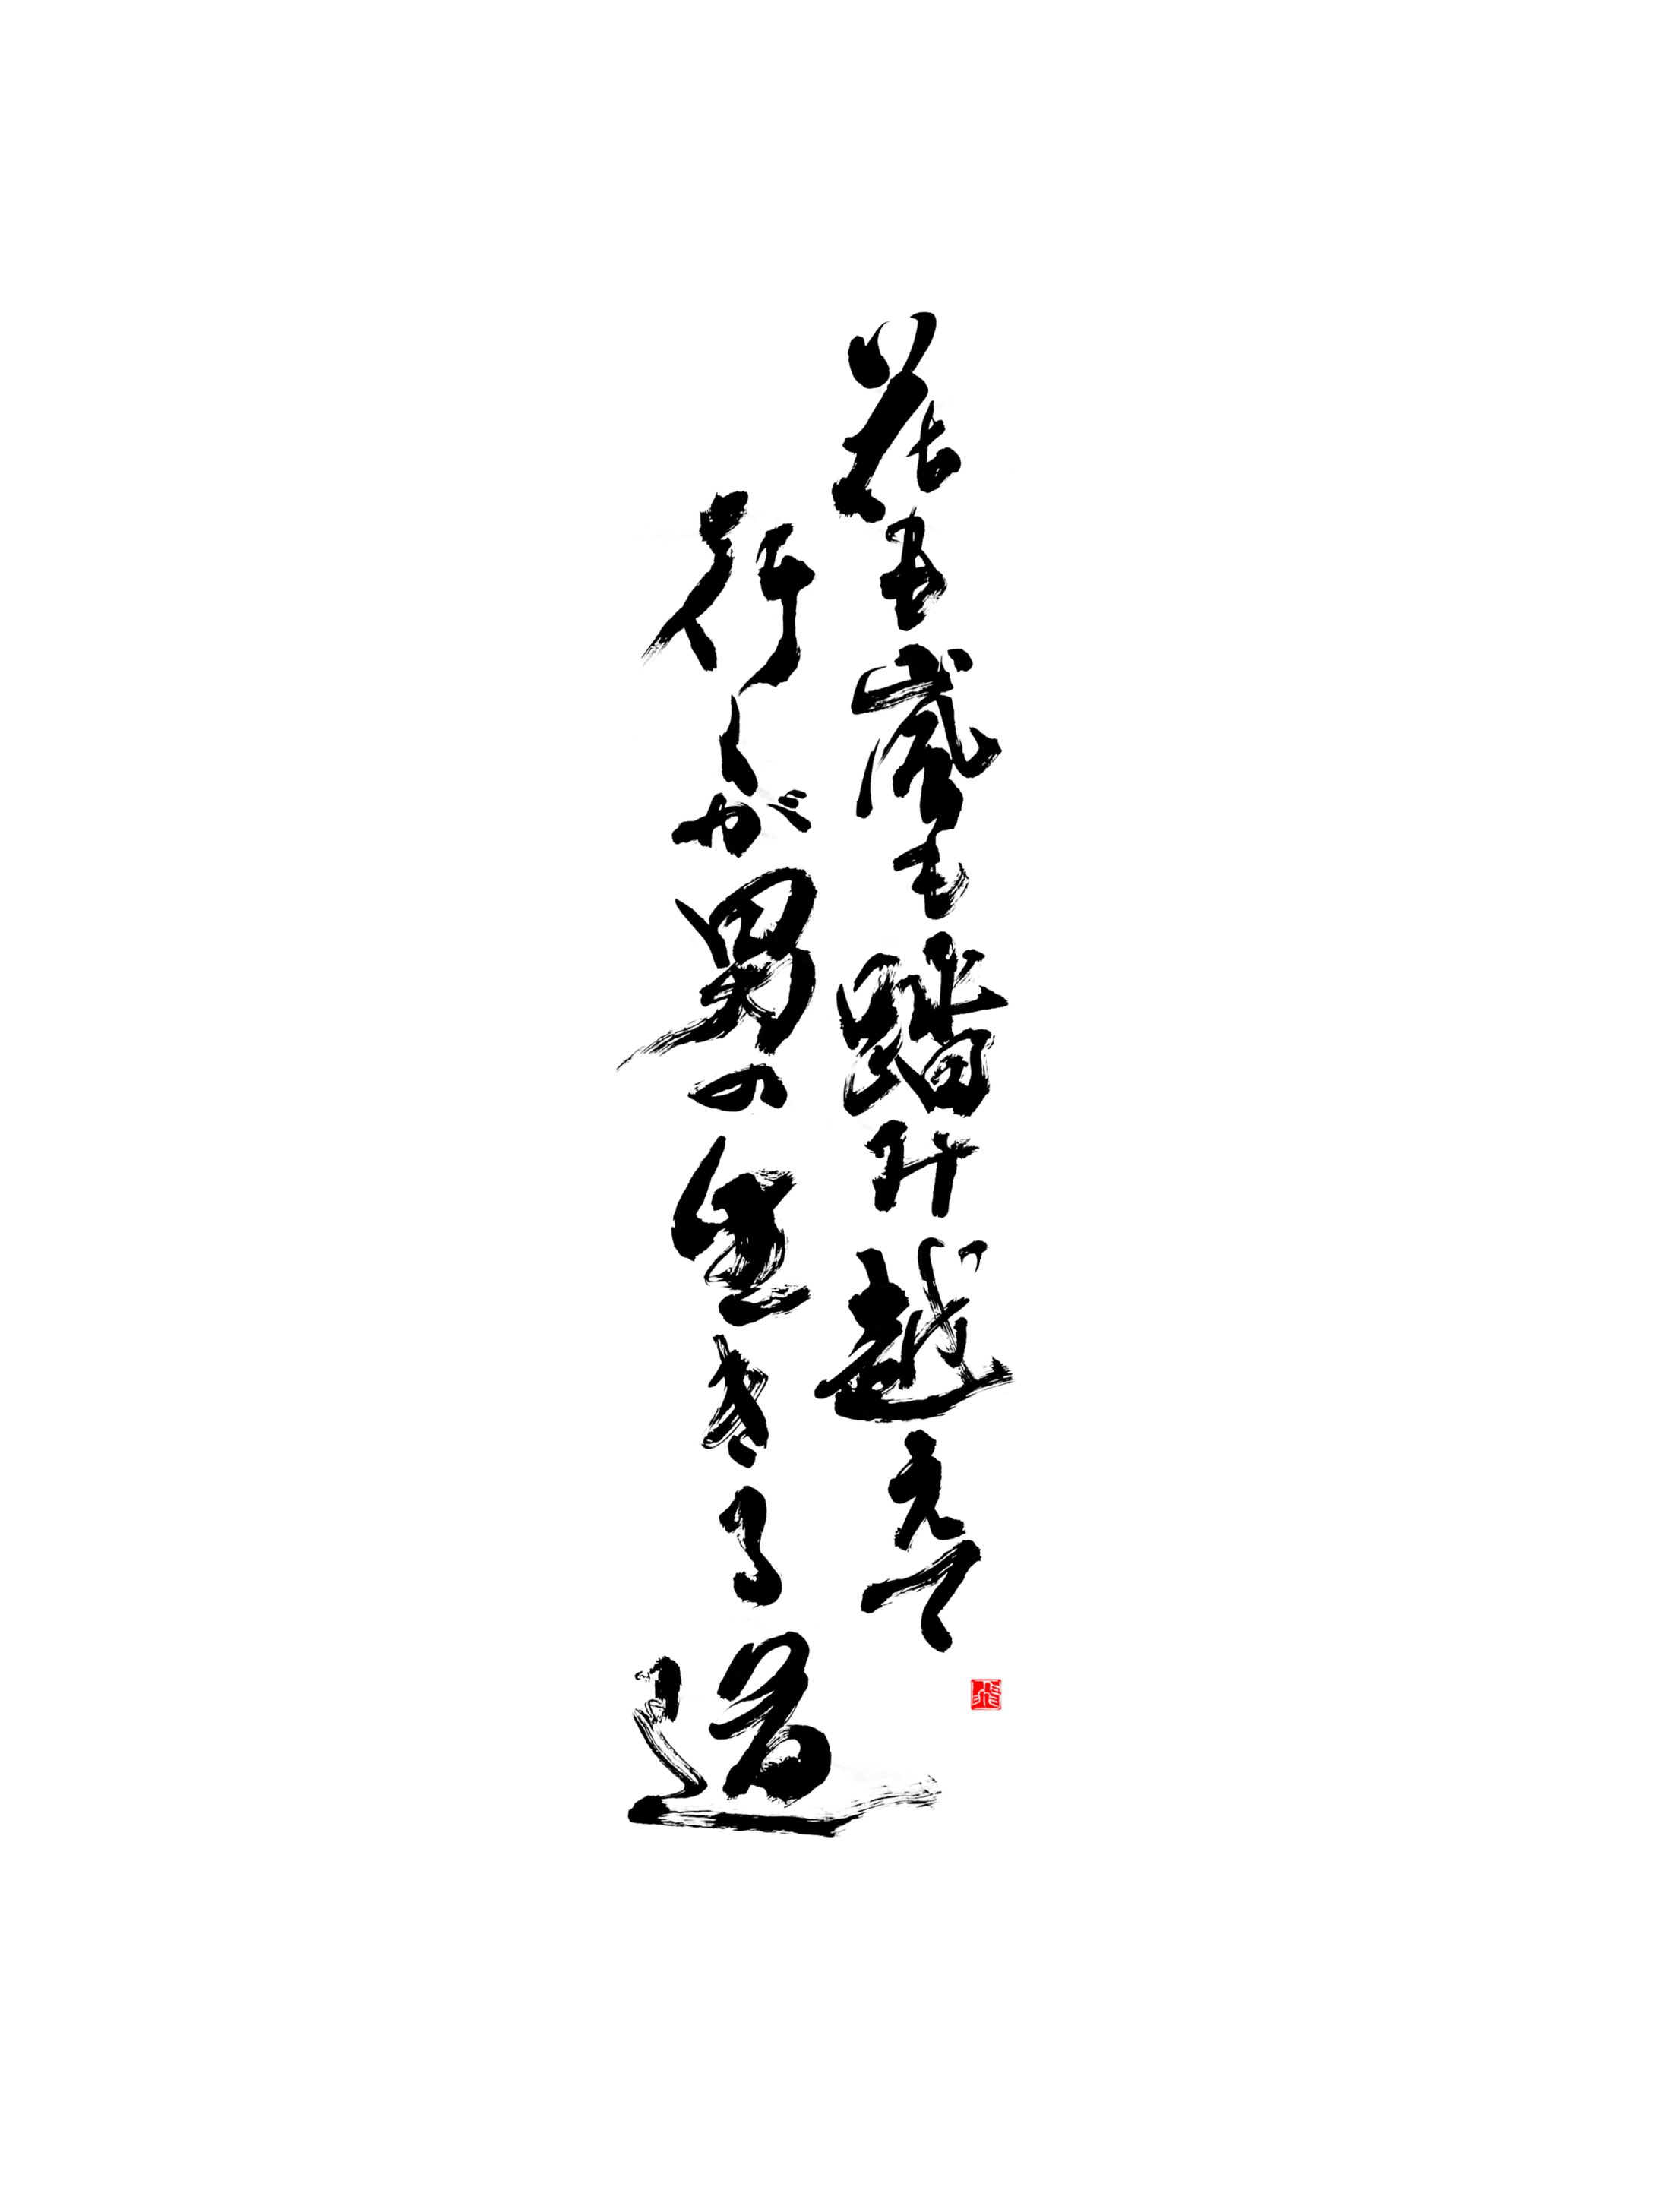 花も嵐も踏み越えて
行くが男の生きる道